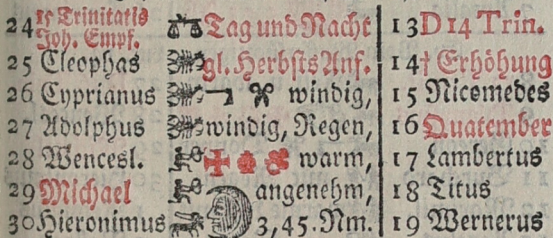 24 15 Trinitatis Joh. Empf. Tag und Nacht 13 D 14 Trin.
25 Cleophas gl. Herbsts Anf. 14 † Erhöhung
26 Cyprianus windig, 15 Nicomedes
27 Adolphus windig, Regen, 16 Quatember
28 Wencesl. warm, 17 Lambertus
29 Michael angenehm, 18 Titus
30 Hieronimus 3, 45. Nm. 19 Wernerus